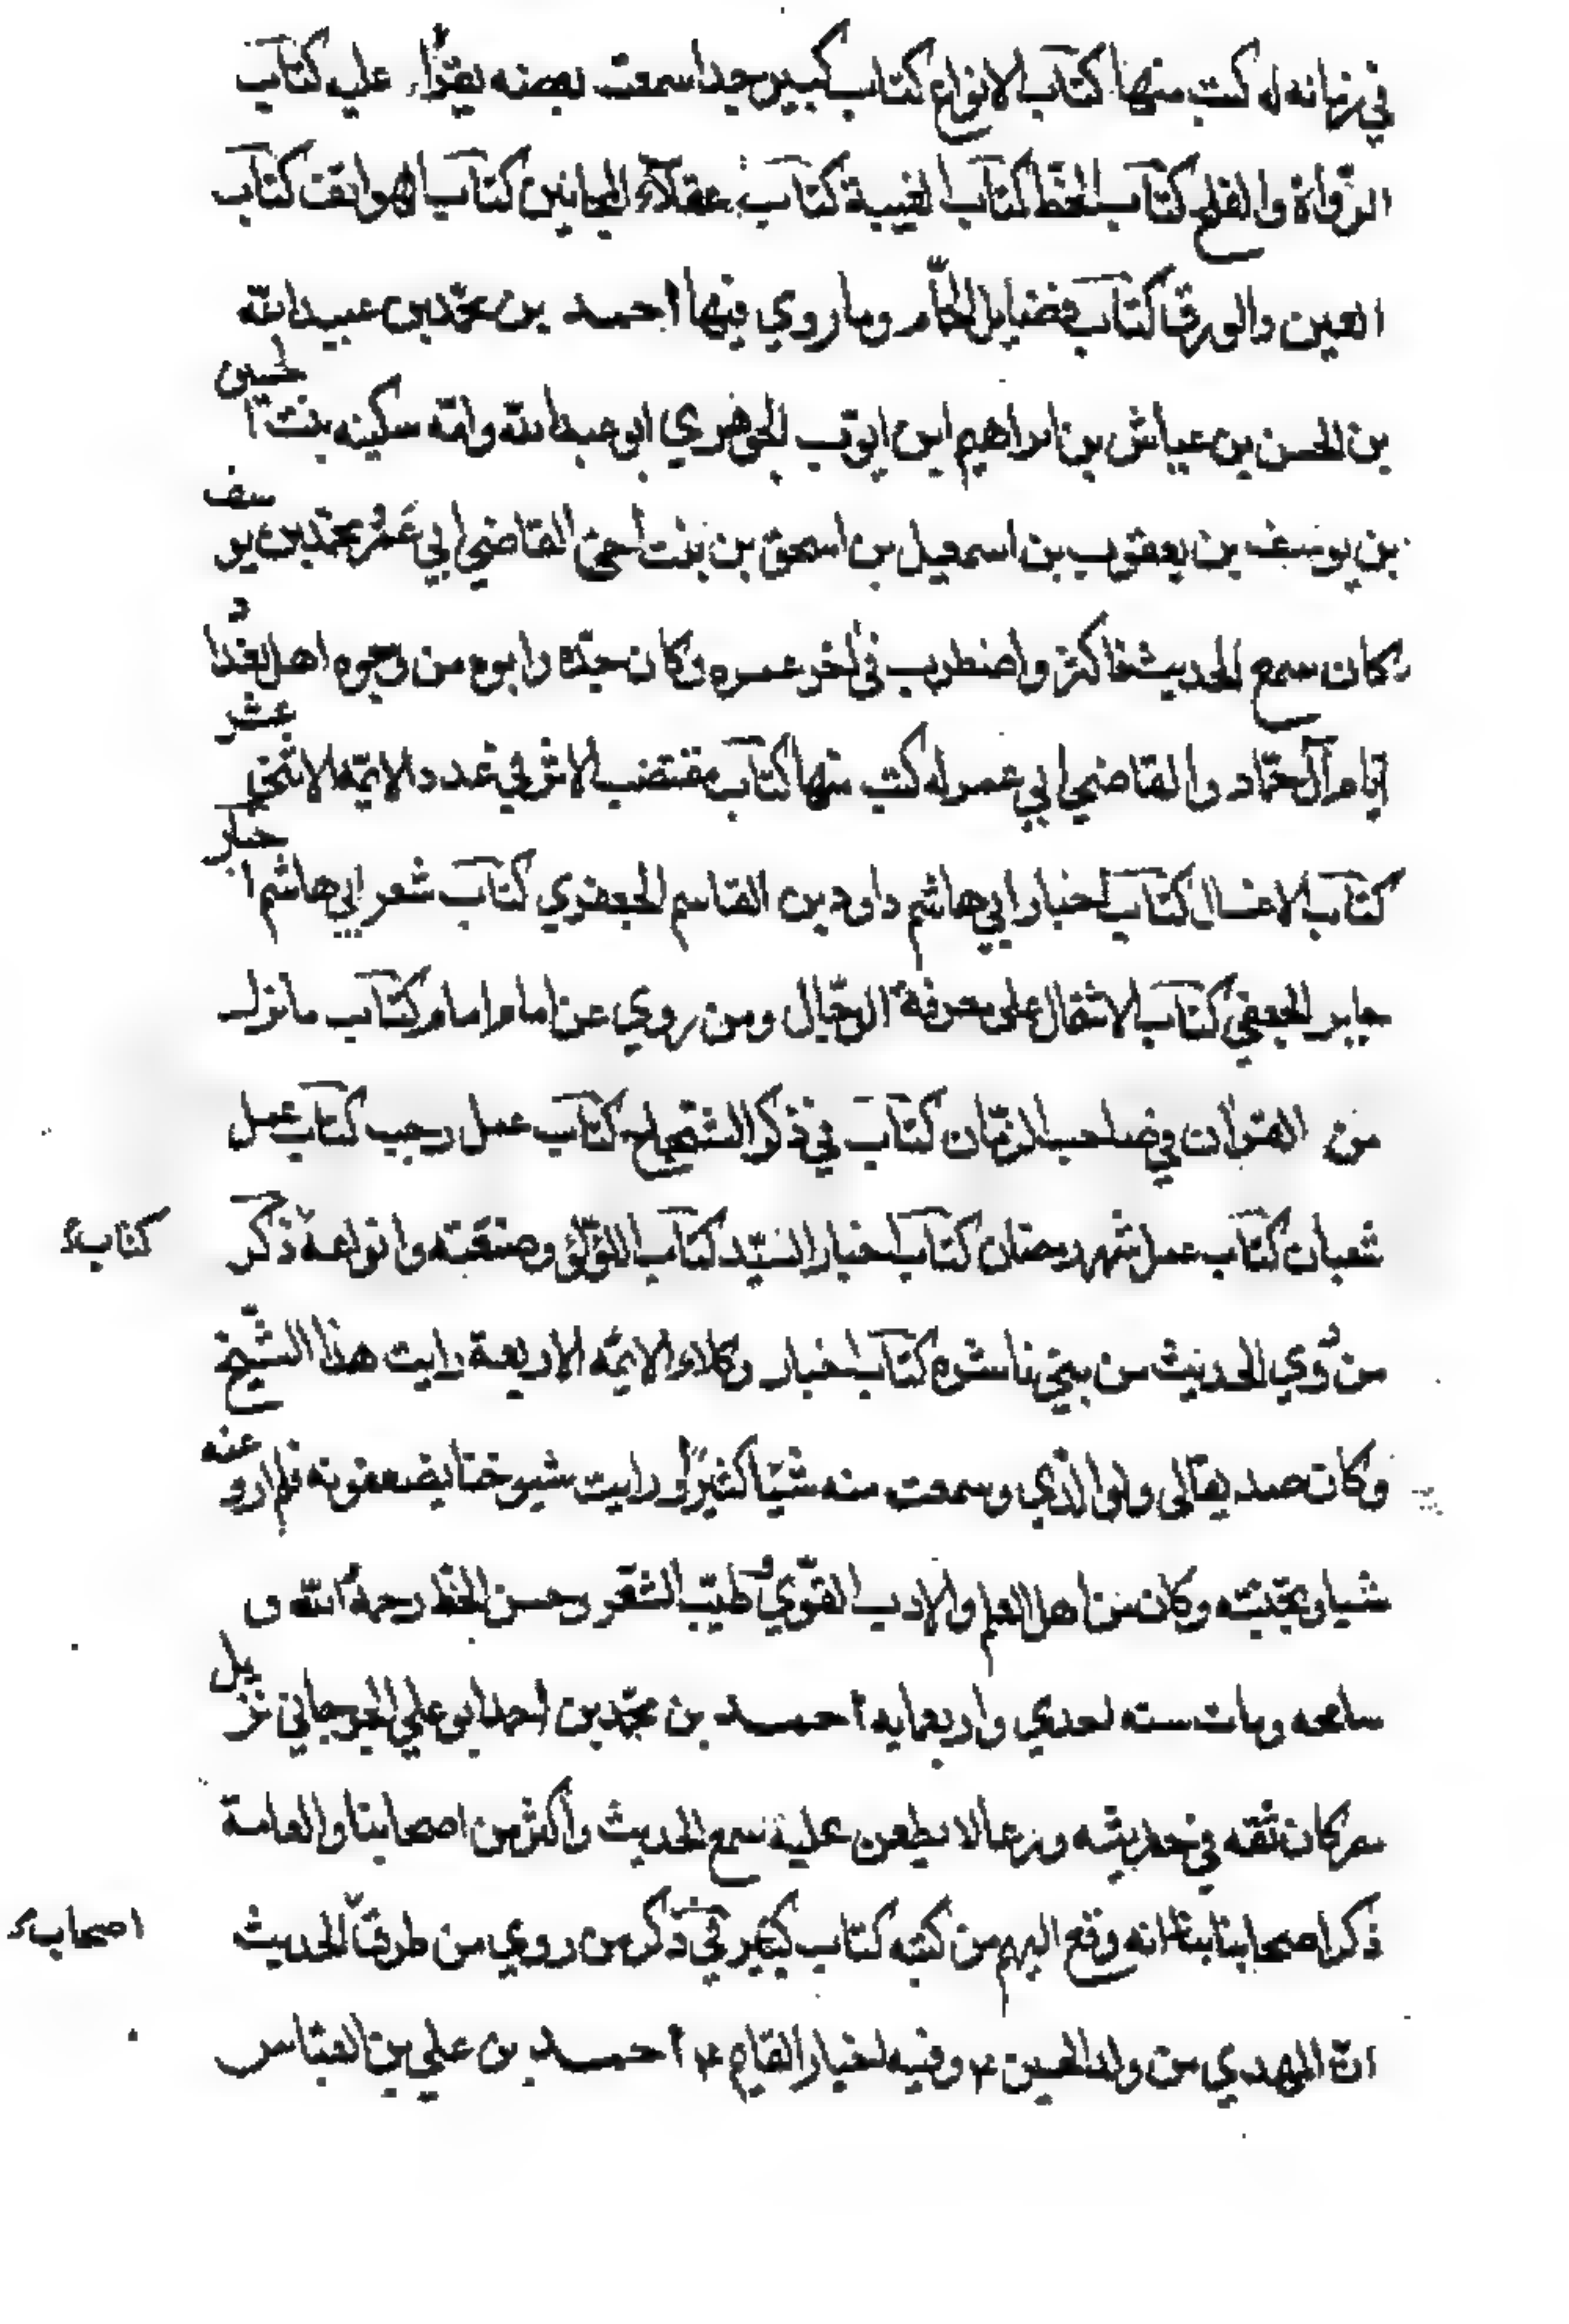 في زمانه له كتب منها كتاب الانواع كتاب كبير جدا سمعت بعضه يقرأ علي كتاب
الدواة والقلم كتاب الخط كتاب الغيبة كتاب عقلاء المجانين كتاب الهواتف كتاب
العين والورق كتاب فضايل الحمام وما روي فيها احمد بن محمد بن عبيدالله
بن الحسن بن عياش بن ابراهيم ابن ايوب الجوهري ابو عبدالله وامه سكينه بنت الحسين
بن يوسف بن يعقوب بن اسمعيل بن اسحق بن بنت اخي القاضي ابي عمر محمد بن يوسف
كان سمع الحديث فاكثر واضطرب في اخر عمره وكان جده وابوه من وجوه اهل بغداد
ايام آل حماد والقاضي ابي عمر له كتب منها كتاب مقتضب الاثر في عدد الايمه الاثني عشر
كتاب الاغسال كتاب اخبار ابي هاشم داود بن القاسم الجعفري كتاب شعر ابي هاشم اخبار
جابر الجعفي كتاب الاشتمال على معرفة الرجال ومن روي عن امام امام كتاب ما نزل
من القران في صاحب الزمان كتاب في ذكر الشجاج كتاب عمل رجب كتاب عمل
شعبان كتاب عمل شهر رمضان كتاب اخبار السيد كتاب اللؤلؤ وصنعته وانواعه ذكر
كتاب
من روي الحديث من بني ناشره كتاب اخبار وكلاء الايمه الاربعة رايت هذا الشيخ
وكان صديقا لي ولوالدي وسمعت منه شيئا كثيرا ورايت شيوخنا يضعفونه فلم ارو عنه
شيا وتجنبته وكان من اهل العلم والادب القوي وطيب الشعر وحسن الخط رحمه الله و
سامحه ومات سنه احدي واربعمايه احمد بن محمد بن احمد ابو علي الجرجاني نزيل
مصر كان ثقه في حديثه ورعا لا يطعن عليه سمع الحديث واكثر من اصحابنا والعامة
ذكر اصحابنا انه وقع اليهم من كتبه كتاب كبير في ذكر من روي من طرق الحديث
اصحاب
ان المهدي من ولد الحسين وفيه اخبار القايم احمد بن علي بن العباس